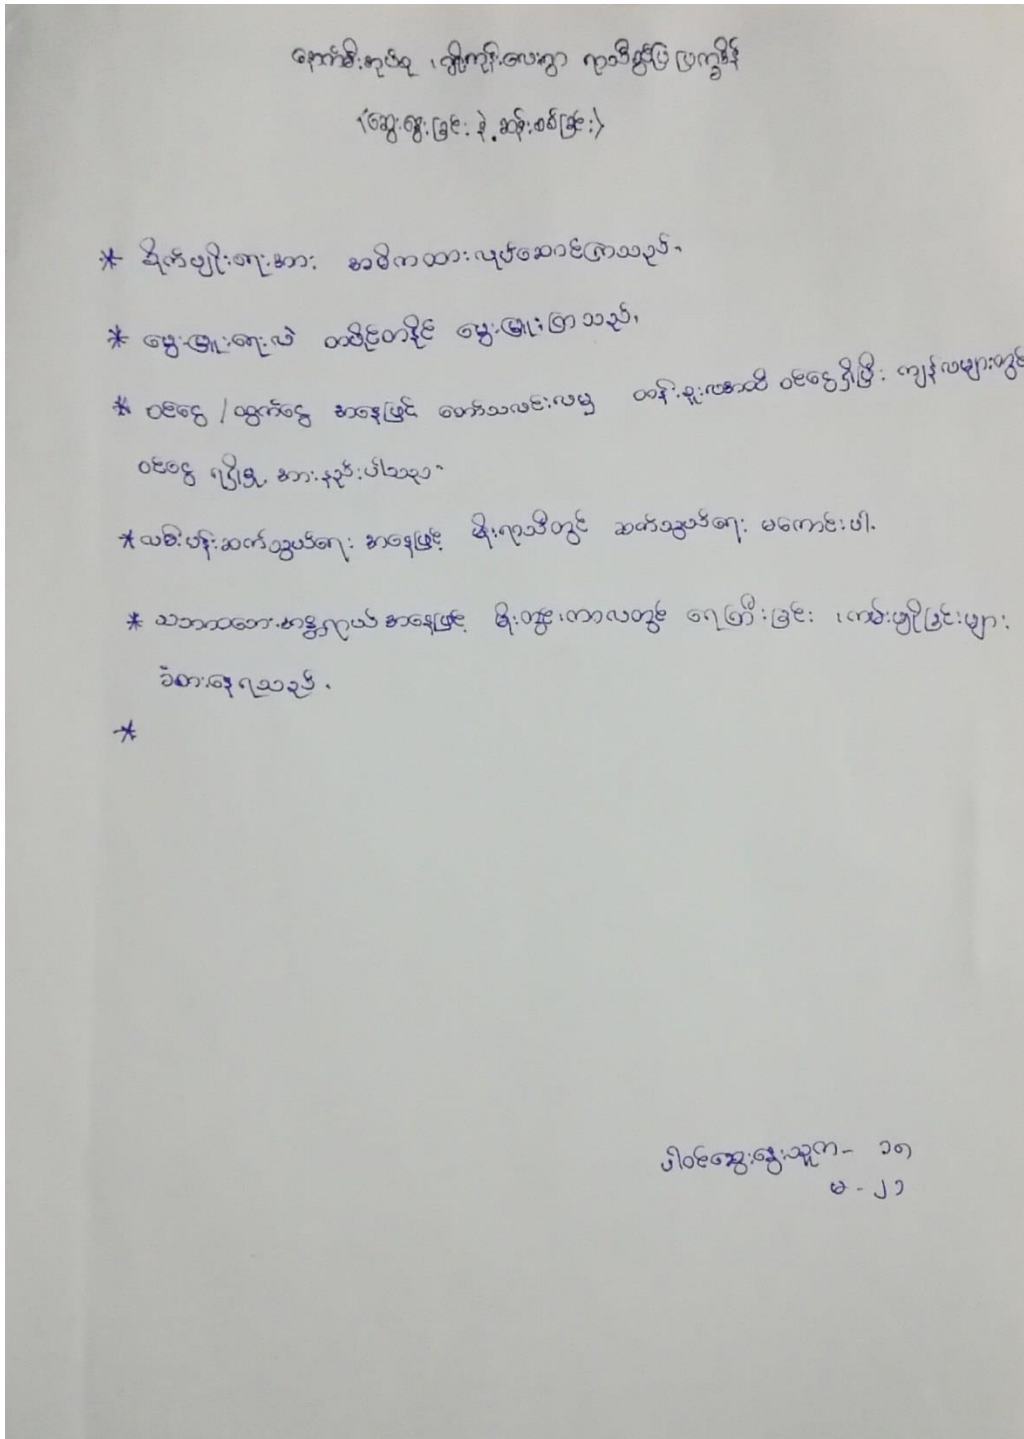 နောက်မီးအုပ်စု ၊ ကျိုကုန်းလေးရွာ ရာသီခွင်ပြ ပြက္ခဒိန်
(ဆွေးနွေးခြင်း နဲ့ ဆန်းစစ်ခြင်း)
* စိုက်ပျိုးရေးအား အဓိကထားလုပ်ဆောင်ကြသည်။
* မွေးမြူရေးလဲ တပိုင်တနိုင် မွေးမြူကြသည်။
* ဝင်ငွေ / ထွက်ငွေ အနေဖြင့် တော်သလင်းလမှ တန်ခူးလအထိ ဝင်ငွေရှိပြီး ကျန်လများတွင်
ဝင်ငွေ ရရှိမှု အားနည်းပါသည်။
* လမ်းပန်းဆက်သွယ်ရေး အနေဖြင့် မိုးရာသီတွင် ဆက်သွယ်ရေး မကောင်းပါ။
* သဘာဝဘေးအန္တရာယ် အနေဖြင့် မိုးတွင်းကာလတွင် ရေကြီးခြင်း ၊ ကမ်းပြိုခြင်းများ
ခံစားနေရသည်။
*
ပါဝင်ဆွေးနွေးသူ ကျ - ၁၅
မ - ၂၁